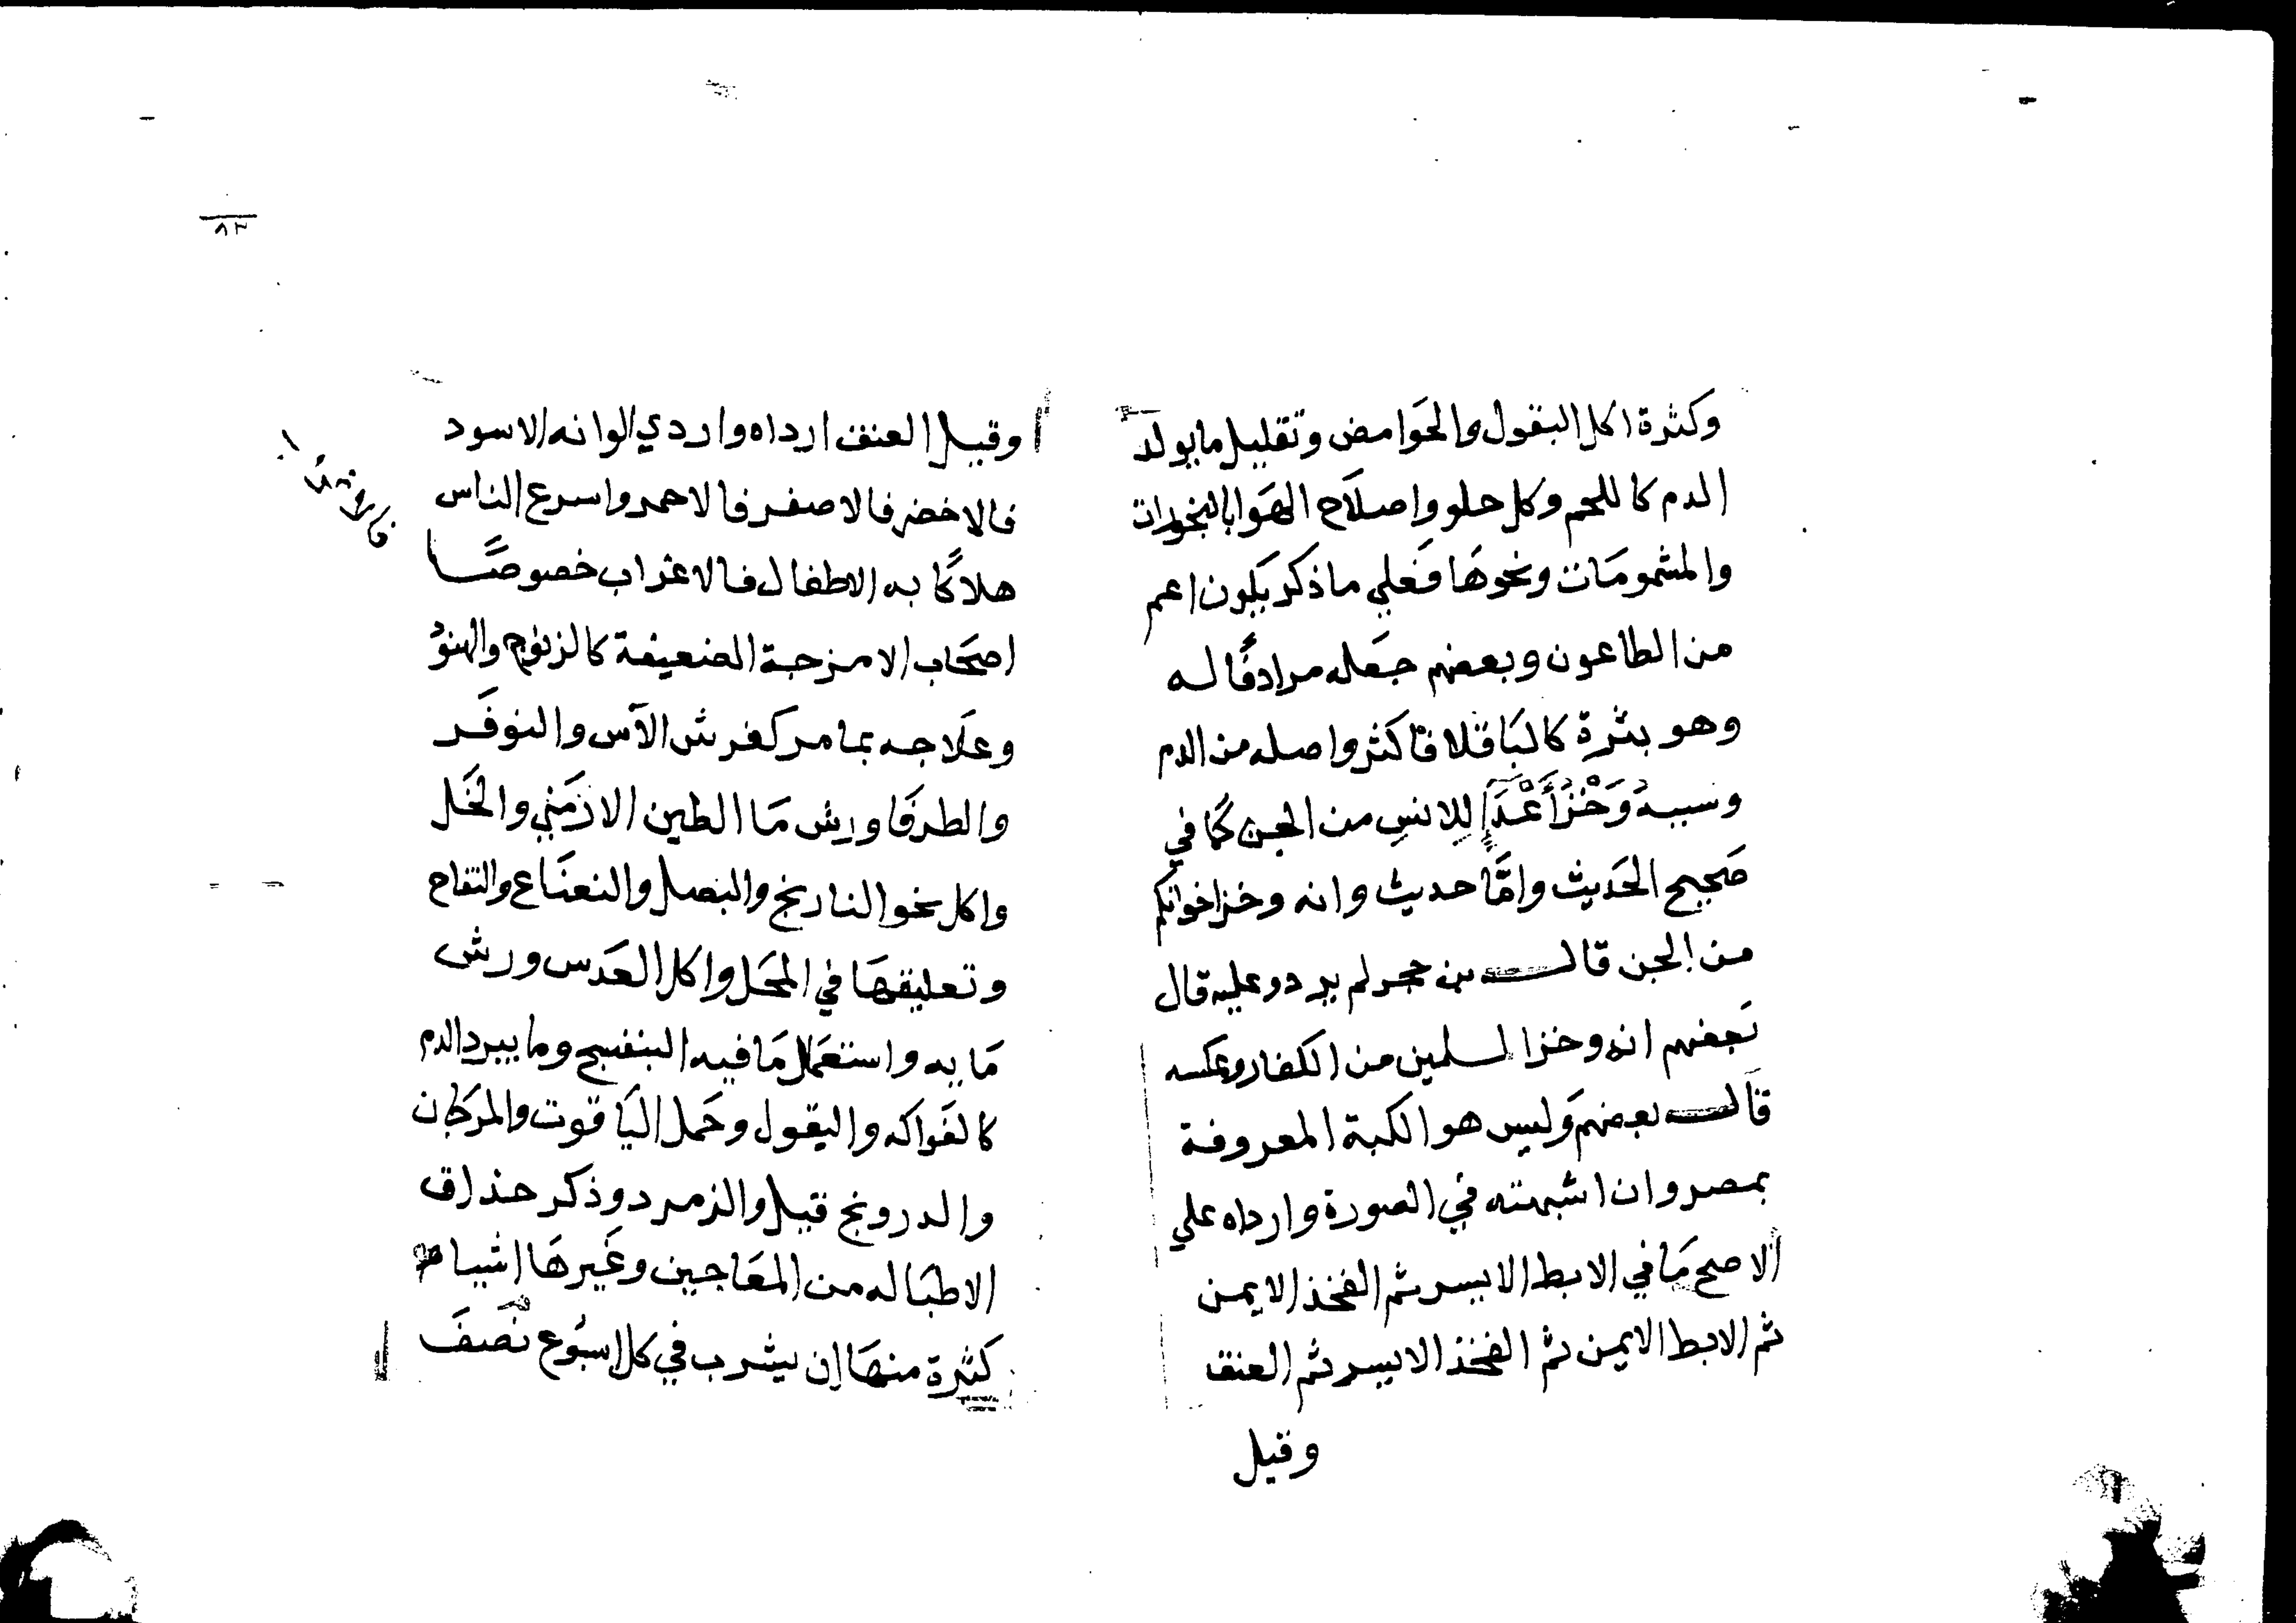 وكثرة اكل البقول والحوامض وتقليل ما يولد
الدم كاللحم وكل حلو واصلاح الهوا بالبخورات
والمشمومات ونحوها فعلي ما ذكر يكون اعم
من الطاعون وبعضهم جعله مرادفًا له
وهو بثرة كالباقلا فاكثر واصله من الدم
وسببه وَخْزُ أَعْدَآءٍ للانس من الجن كما في
صحيح الحديث وامّا حديث وانه وخز اخوانكم
من الجن قال بن حجر لم يرد وعليه قال
بعضهم انه وخز المسلمين من الكفار وعكسه
قال بعضهم وليس هو الكبة المعروفة
بمصر وان اشبهته في الصورة وارداه علي
الاصح ما في الابط الايسر ثم الفخذ الايمن
ثم الابط الايمن ثم الفخذ الايسر ثم العنق
وقيل
وقيل العنق ارداه واردي الوانه الاسود
فالاخضر فالاصفر فالاحمر واسرع الناس
هلاكًا به الاطفال فالاغراب خصوصًا
اصحاب الامزجة الضعيفة كالزنوج والهنود
وعلاجه بما مر كفرش الآس والنوفر
والطرفا ورش ما الطين الارمني والخل
واكل نحو النارنج والبصل والنعناع والتفاح
وتعليقها في المحل واكل العدس ورش
مايه واستعمال ما فيه البنفسج وما يبرد الدم
كالفواكه والبقول وحمل الياقوت والمرجان
والدرونج قيل والزمرد وذكر حذاق
الاطبا له من المعاجين وغيرها اشيا
كثيرة منها ان يشرب في كل اسبوع نصف
٨٣